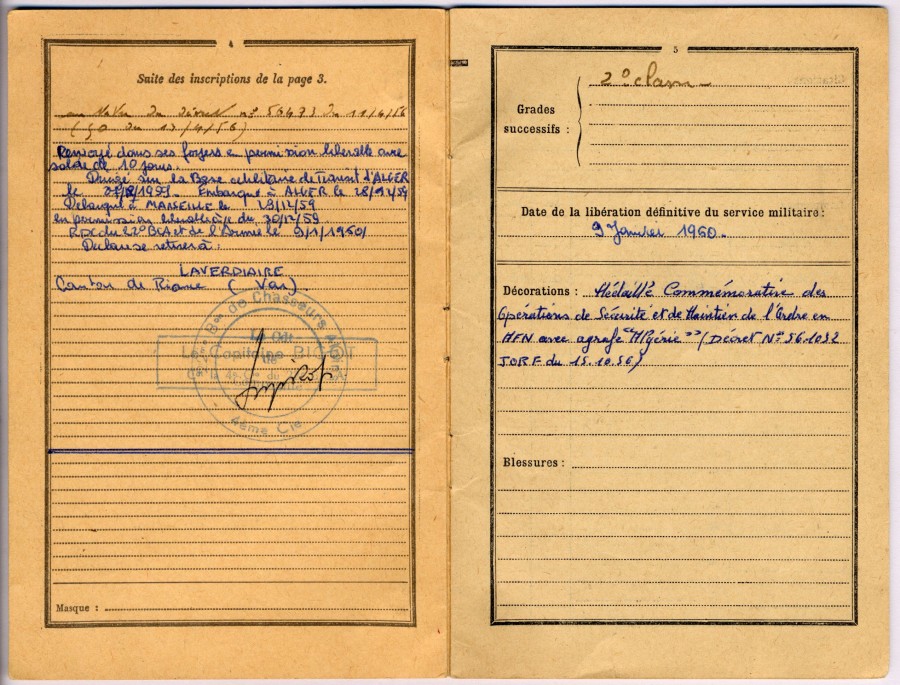 4
Suite des inscriptions de la page 3.
du 11/4/56
( JO du 13/4/56)
Renvoyé dans ses foyers en permission libérable avec
solde de 10 jours.
Dirigé sur la Base Militaire de Transit d'ALGER
le Embarqué à ALGER le 28/12/59
Débarqué à MARSEILLE le 29/12/59
En permission libérable du 30/12/59
RDC du 22° BCA et de l'Armée le 9/1/1960
Déclare se retirer à :
LAVERDIAIRE
Canton de Rians ( Var).
Bon de Chasseurs Alpins
Le Cdt
Le Capitaine
4ème Cie
Masque :
5
Grades
successifs :
2° classe
Date de la libération définitive du service militaire :
9 Janvier 1960.
Décorations : Médaillé Commémorative des
Opérations de Sécurité et de Maintien de l'Ordre en
AFN avec agrafe "Algérie" (Décret N° 56.1032
JORF du 15.10.56)
Blessures :